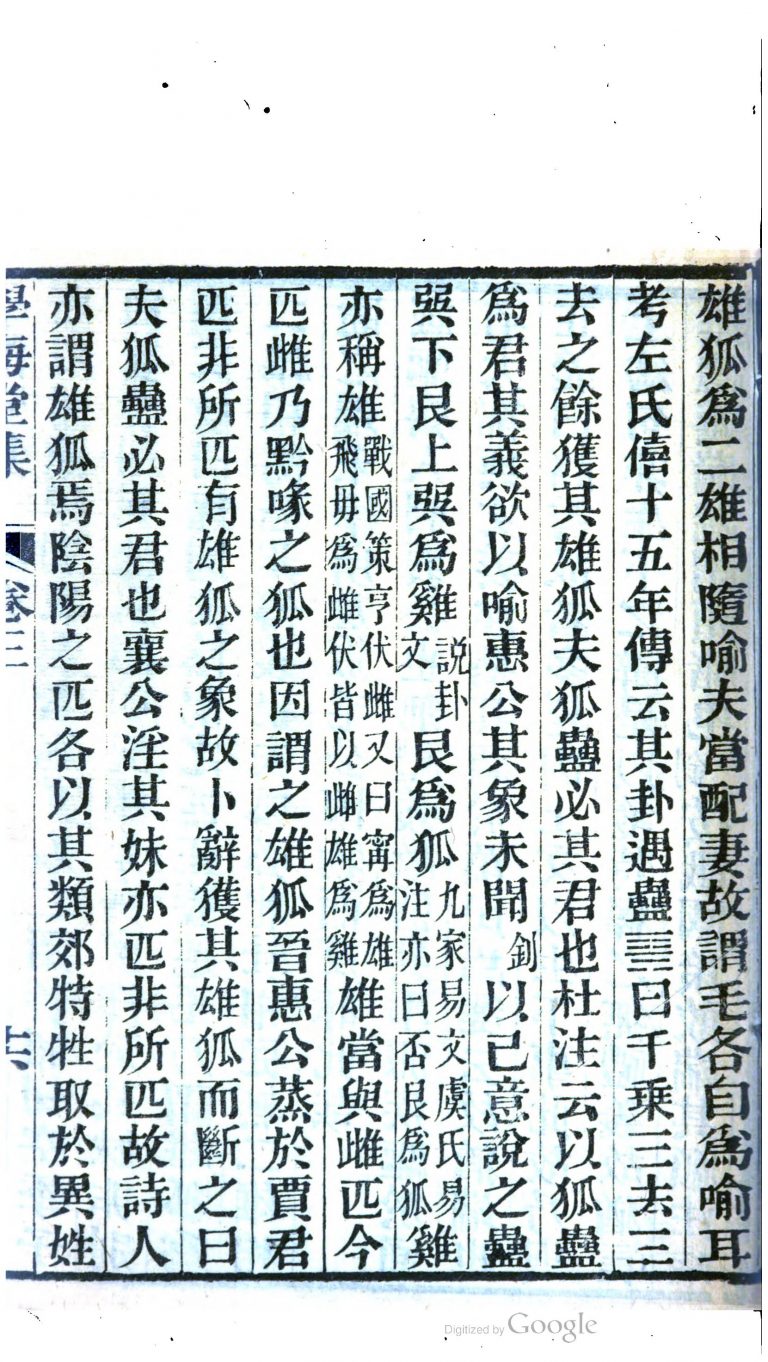 雄狐爲二雄相隨喻夫當配妻故謂毛各自爲喻耳
考左氏僖十五年傳云其卦遇蠱䷑曰千乘三去三
去之餘獲其雄狐夫狐蠱必其君也杜注云以狐蠱
爲君其義欲以喻惠公其象未聞釗以己意說之蠱
巽下艮上巽爲雞說卦文艮爲狐九家易文虞氏易注亦曰否艮爲狐雞
亦稱雄戰國策亨伏雌又曰甯爲雄飛毋爲雌伏皆以雌雄爲雞雄當與雌匹今
匹雌乃黔喙之狐也因謂之雄狐晉惠公蒸於賈君
匹非所匹有雄狐之象故卜辭獲其雄狐而斷之曰
夫狐蠱必其君也襄公淫其妹亦匹非所匹故詩人
亦謂雄狐焉陰陽之匹各以其類郊特牲取於異姓
學海堂集 卷三 十六
Digitized by Google